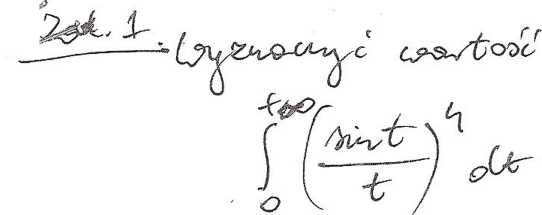 Zad. 1. Wyznaczyć wartość
+∞
∫ (sin t / t)^4 dt
0